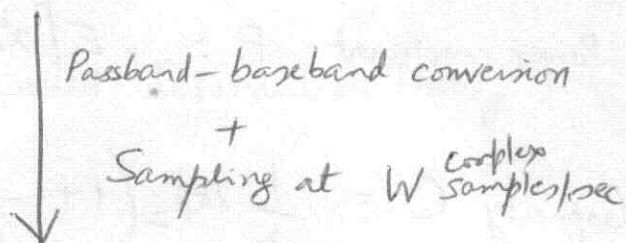 Passband-baseband conversion
+
Sampling at W complex samples/sec